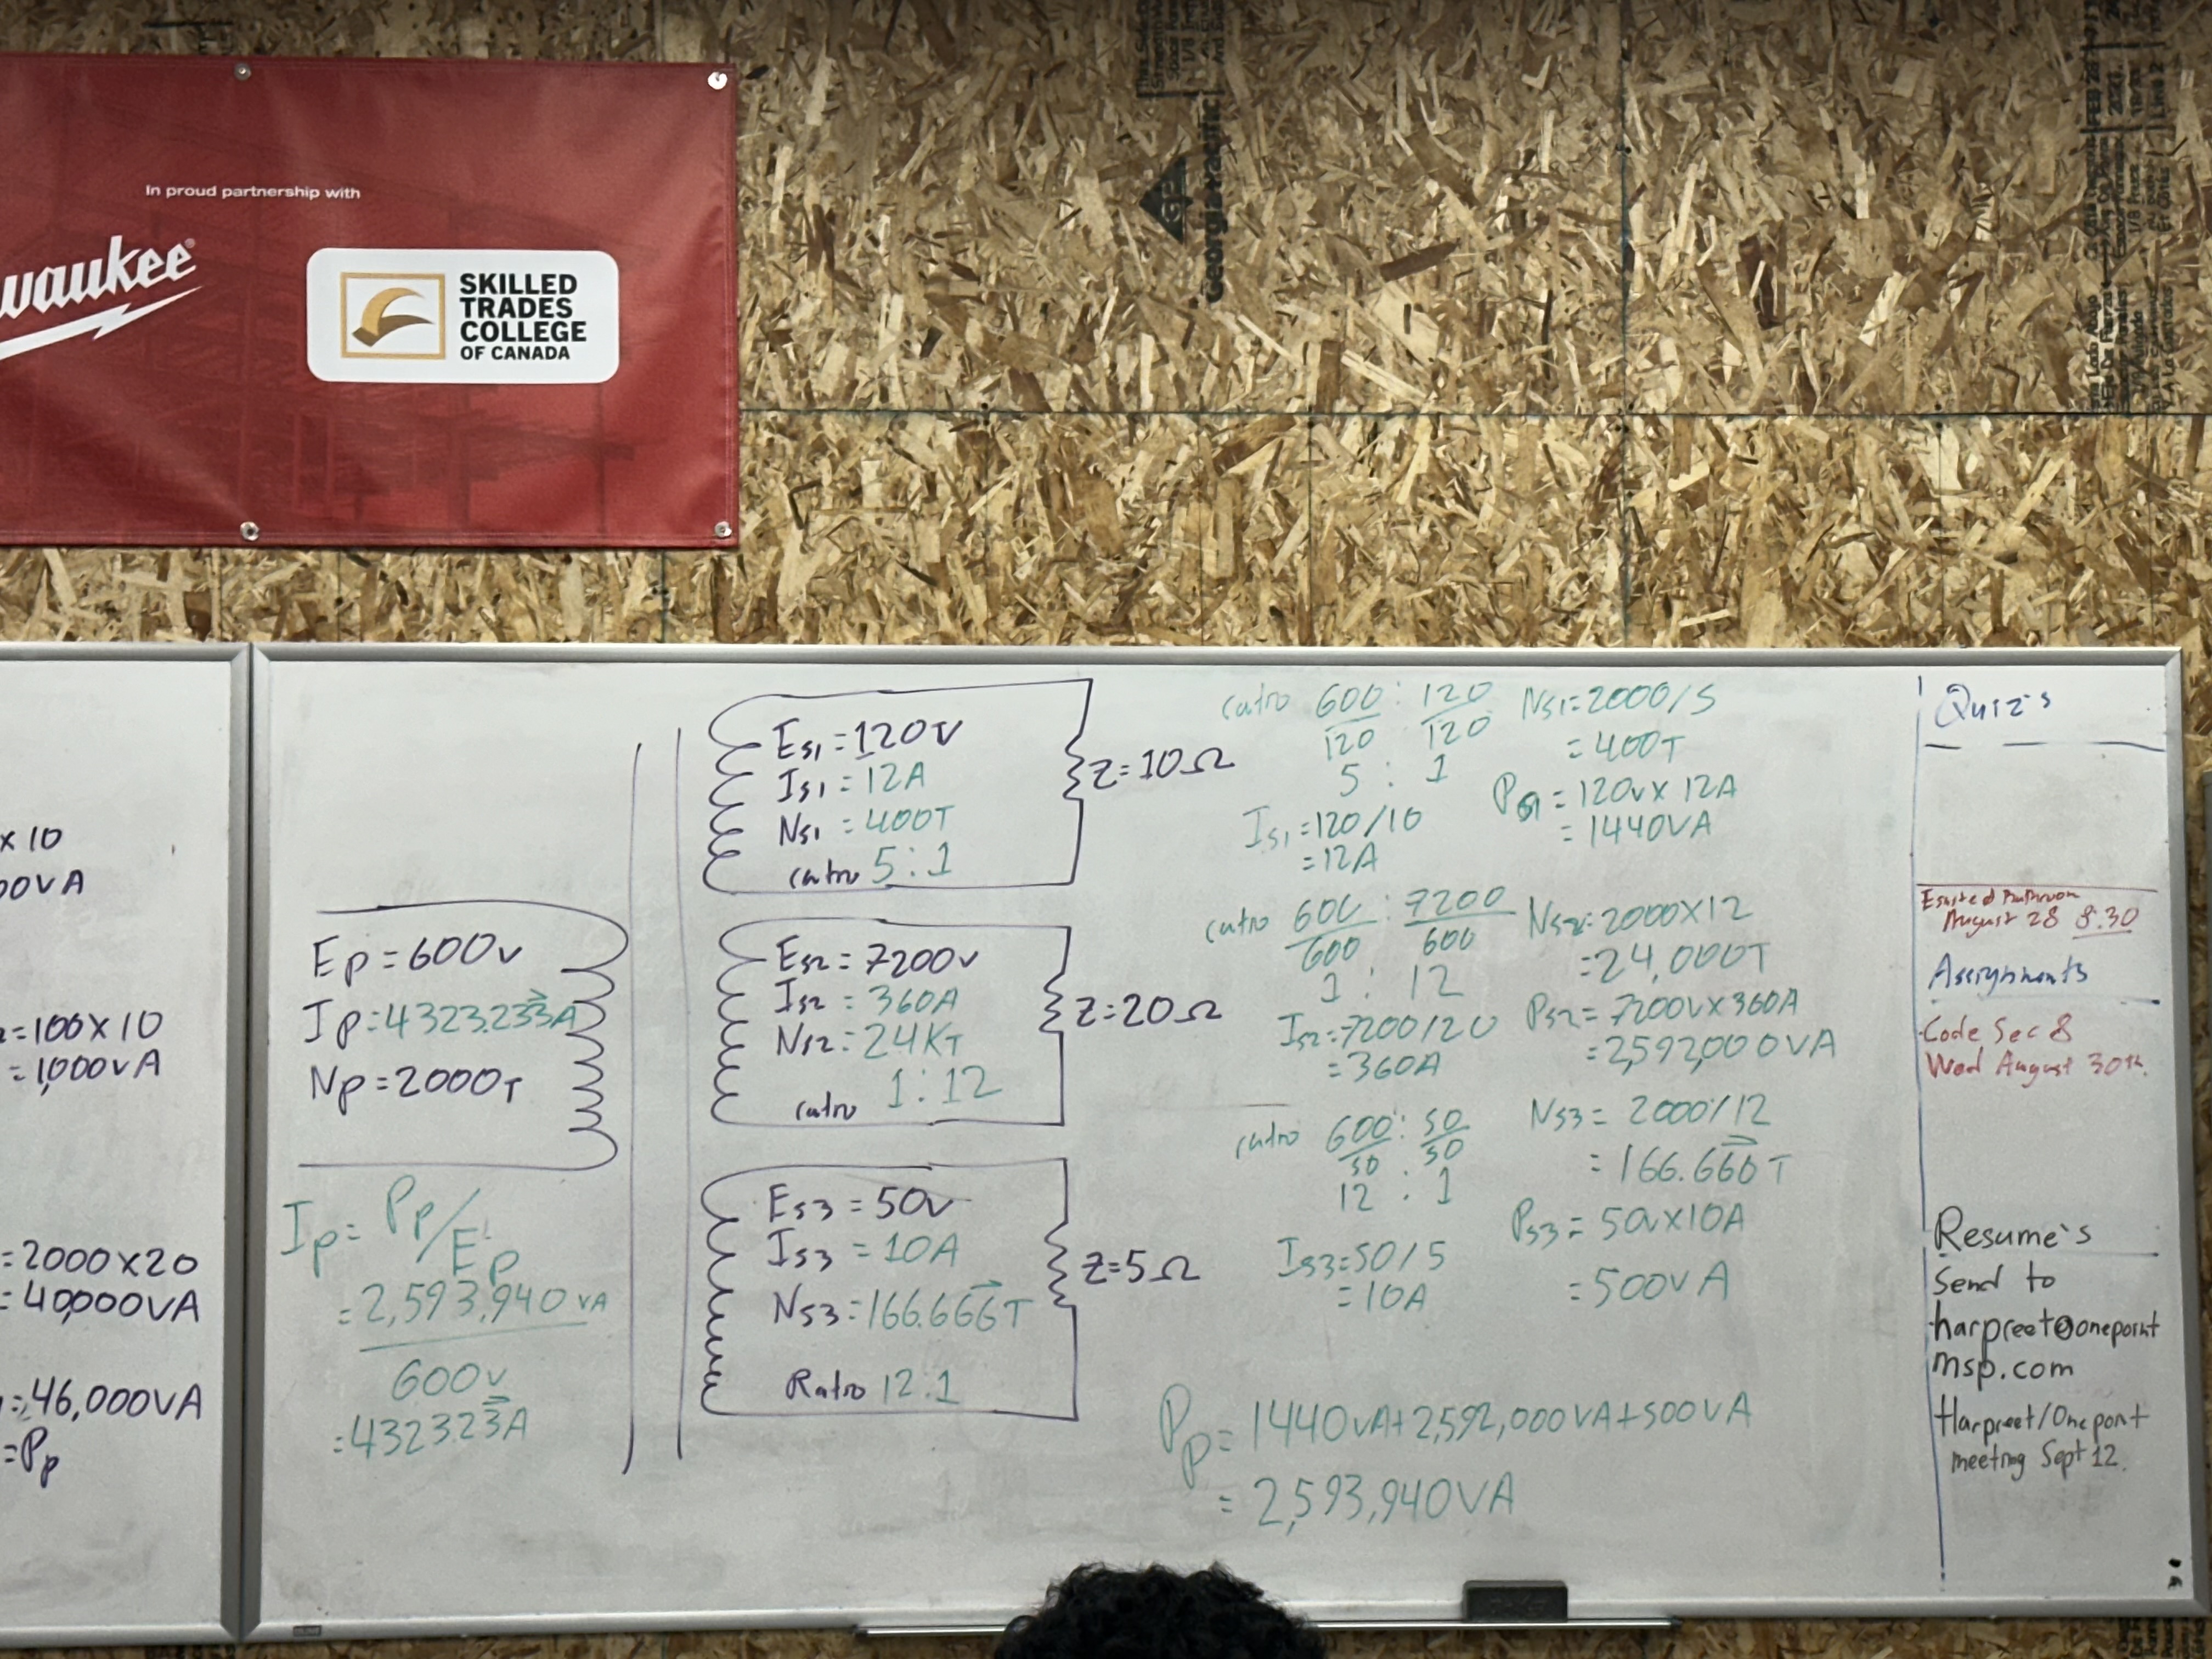 In proud partnership with
waukee
SKILLED
TRADES
COLLEGE
OF CANADA
GP
Georgia-Pacific
x 10
00VA
=100X10
=1,000VA
=2000X20
=40,000VA
=46,000VA
=Pp
Ep=600v
Ip=4323.233A
Np=2000T
Ip=Pp/Ep
=2,593,940VA
600v
=4323.23A
Es1=120V
Is1=12A
Ns1=400T
ratio 5:1
Z=10Ω
Es2=7200v
Is2=360A
Ns2=24KT
ratio 1:12
Z=20Ω
Es3=50v
Is3=10A
Ns3=166.666T
Ratio 12:1
Z=5Ω
ratio 600:120
120 120
5:1
Is1=120/10
=12A
Ns1=2000/5
=400T
Ps1=120vX12A
=1440VA
ratio 600:7200
600 600
1:12
Is2=7200/20
=360A
Ns2=2000X12
=24,000T
Ps2=7200vX360A
=2,592,000VA
ratio 600:50
50 50
12:1
Is3=50/5
=10A
Ns3=2000/12
=166.666T
Ps3=50vX10A
=500VA
Pp=1440VA+2,592,000VA+500VA
=2,593,940VA
Quiz's
August 28 8:30
Assignments
Code Sec 8
Wed August 30th.
Resume's
Send to
harpreet@onepoint
msp.com
Harpreet/Onepoint
meeting Sept 12.